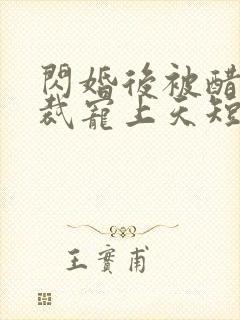 閃婚後被醋
裁寵上天短
王實甫